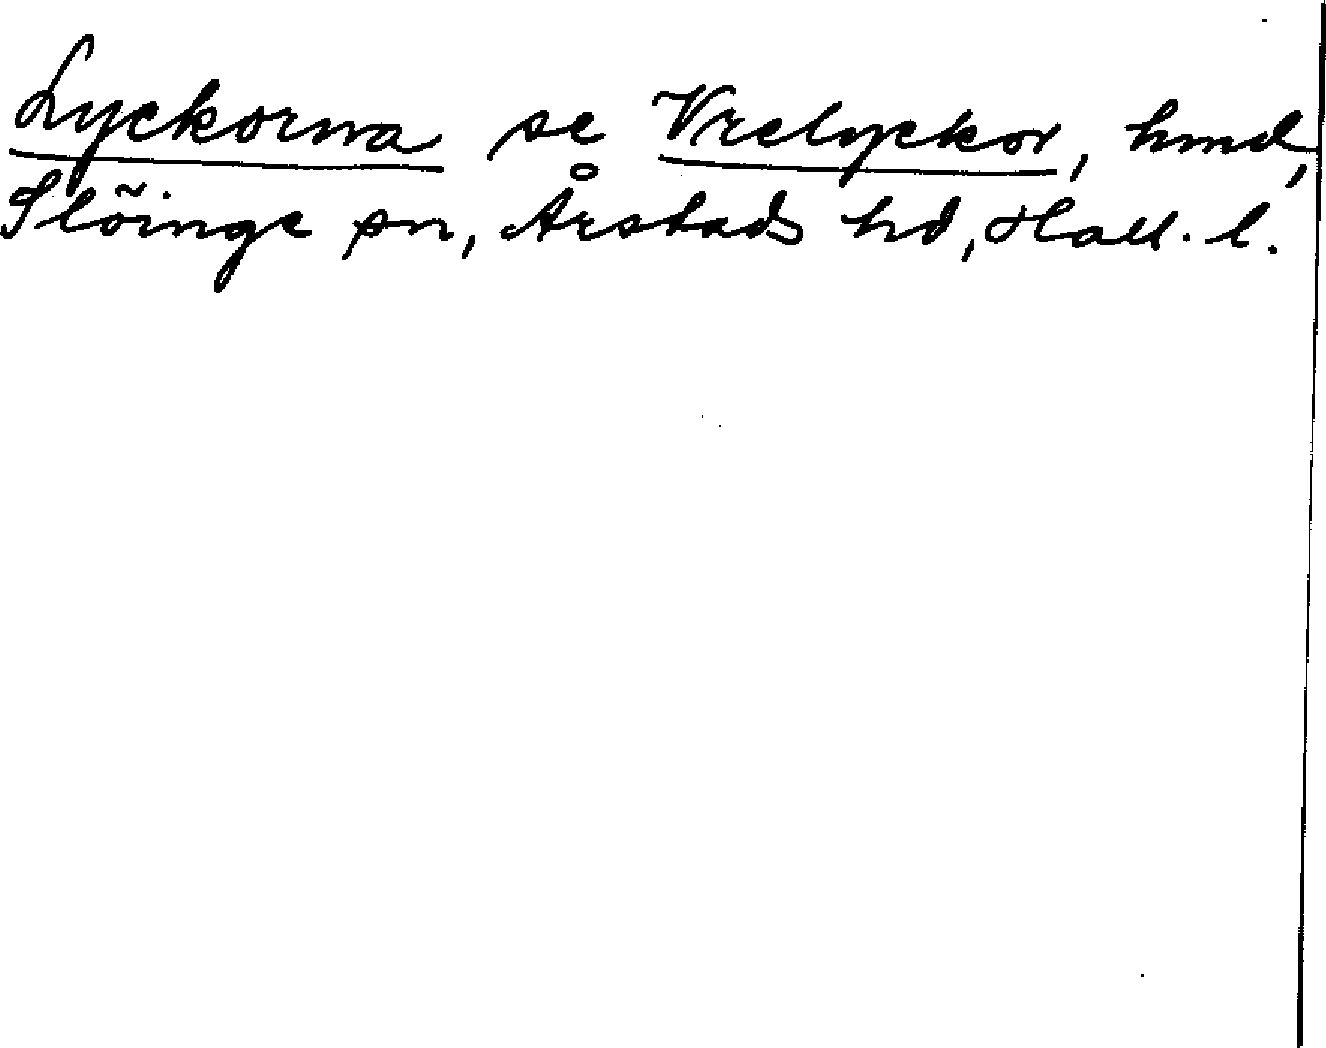 Lyckorna se Vrelyckor, hmd,
Slöinge sn, Årstads hd, Hall. l.